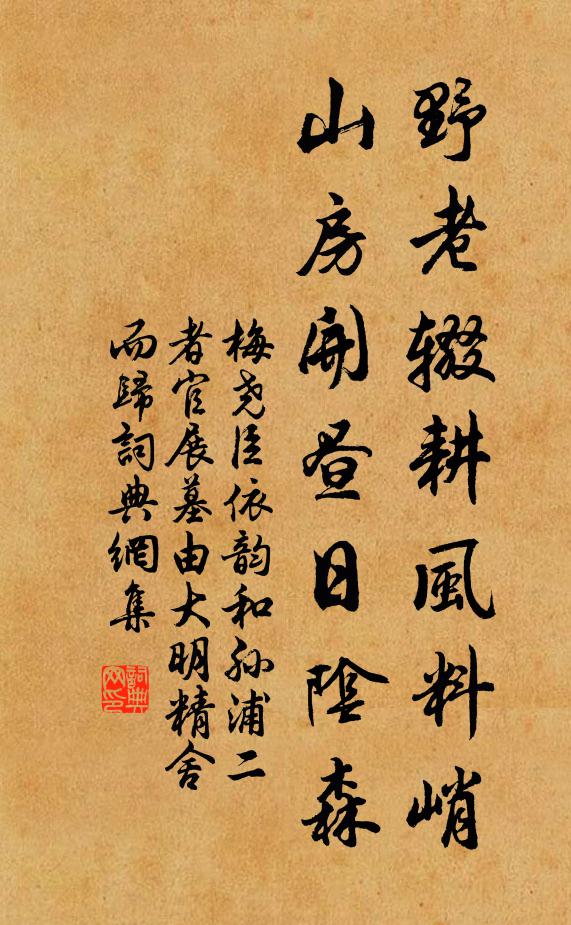 野老辍耕風料峭
山房開昼日陰森
梅尧臣依韵和孙浦二
者官展墓由大明精舍
而歸詞典網集
詞典
网印